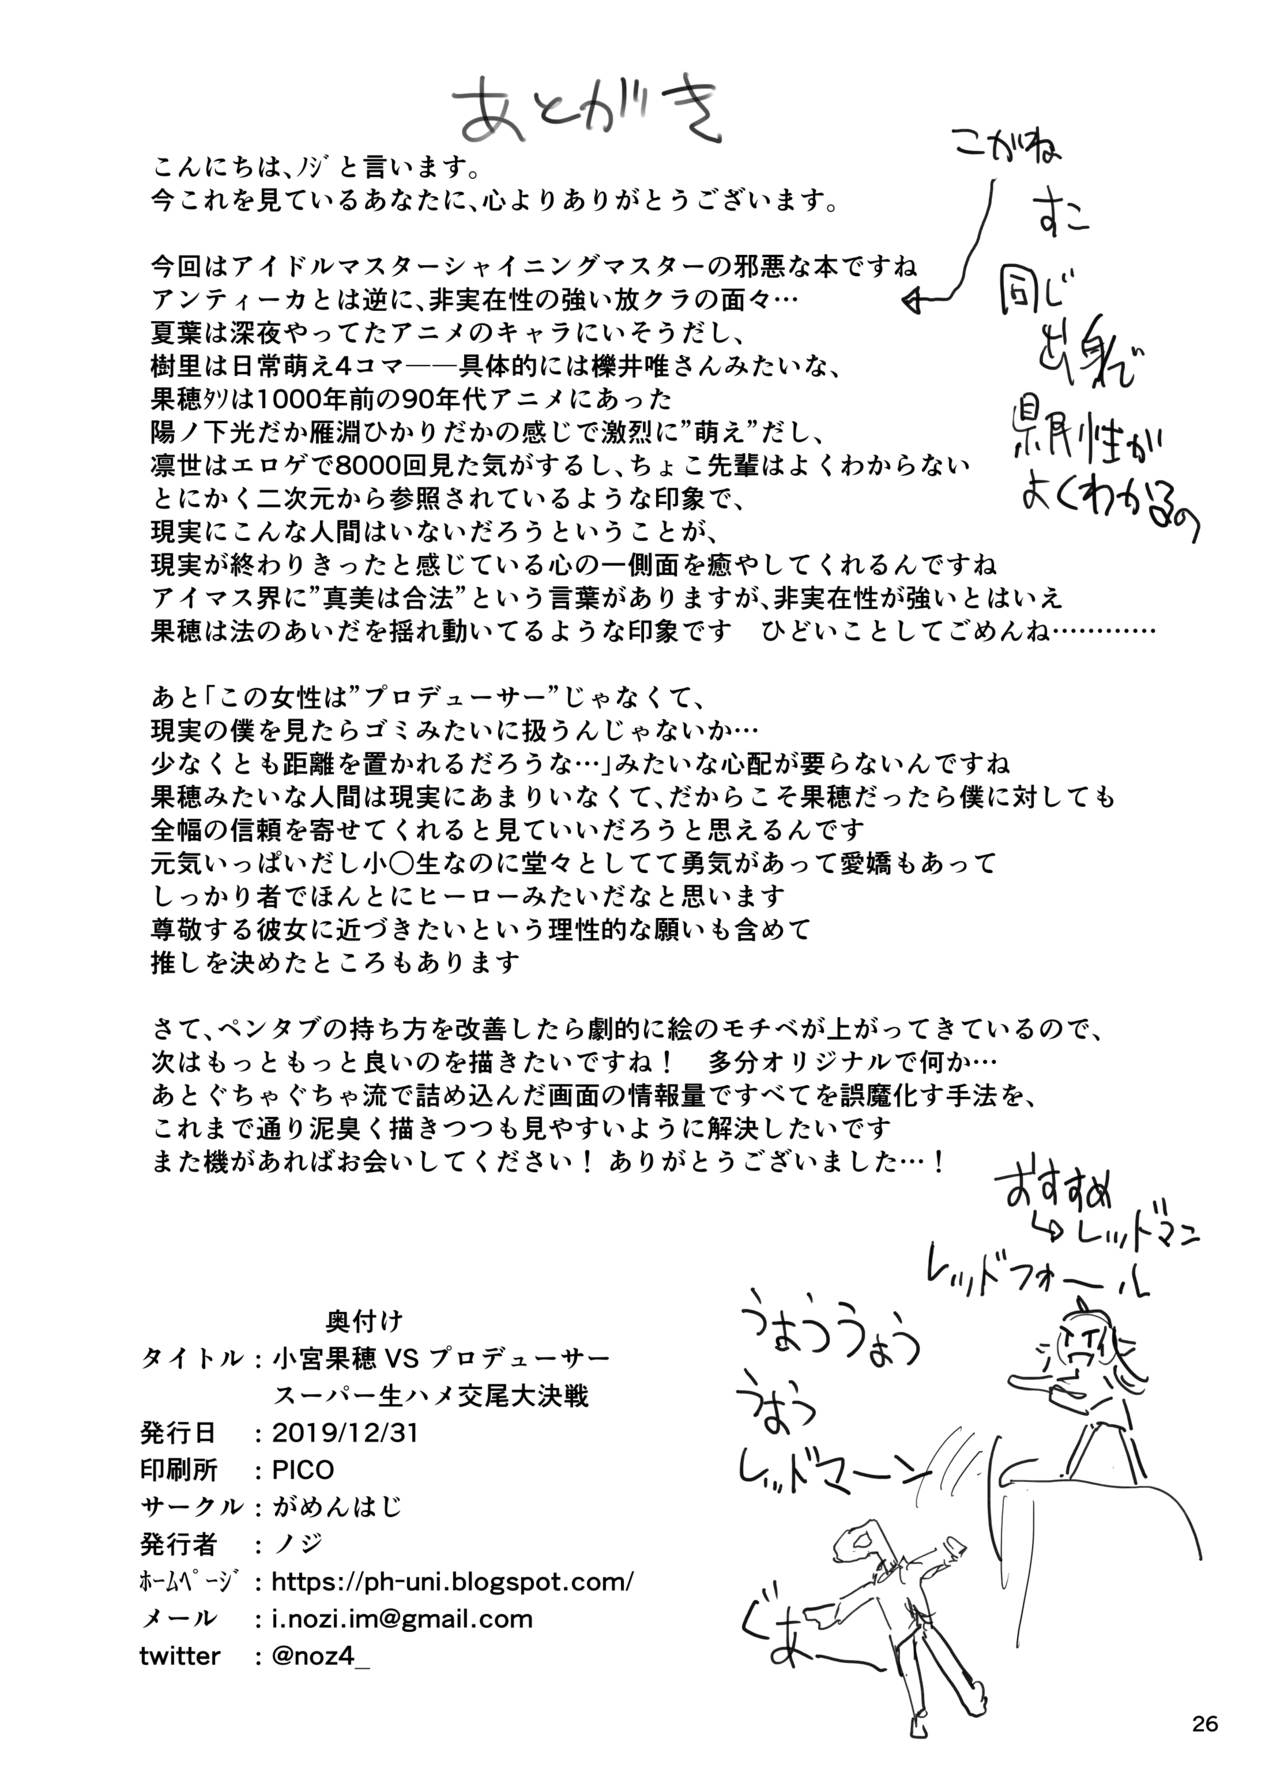 あとがき
こんにちは、ノジと言います。
今これを見ているあなたに、心よりありがとうございます。
今回はアイドルマスターシャイニングマスターの邪悪な本ですね
アンティーカとは逆に、非実在性の強い放クラの面々…
夏葉は深夜やってたアニメのキャラにいそうだし、
樹里は日常萌え4コマ――具体的には櫟井唯さんみたいな、
果穂ﾀｿは1000年前の90年代アニメにあった
陽ノ下光だか雁淵ひかりだかの感じで激烈に”萌え”だし、
凛世はエロゲで8000回見た気がするし、ちょこ先輩はよくわからない
とにかく二次元から参照されているような印象で、
現実にこんな人間はいないだろうということが、
現実が終わりきったと感じている心の一側面を癒やしてくれるんですね
アイマス界に”真美は合法”という言葉がありますが、非実在性が強いとはいえ
果穂は法のあいだを揺れ動いてるような印象です　ひどいことしてごめんね…………
こがね
すこ
同じ
出身で
県民性が
よくわかるの
あと「この女性は”プロデューサー”じゃなくて、
現実の僕を見たらゴミみたいに扱うんじゃないか…
少なくとも距離を置かれるだろうな…」みたいな心配が要らないんですね
果穂みたいな人間は現実にあまりいなくて、だからこそ果穂だったら僕に対しても
全幅の信頼を寄せてくれると見ていいだろうと思えるんです
元気いっぱいだし小〇生なのに堂々としてて勇気があって愛嬌もあって
しっかり者でほんとにヒーローみたいだなと思います
尊敬する彼女に近づきたいという理性的な願いも含めて
推しを決めたところもあります
さて、ペンタブの持ち方を改善したら劇的に絵のモチベが上がってきているので、
次はもっともっと良いのを描きたいですね！　多分オリジナルで何か…
あとぐちゃぐちゃ流で詰め込んだ画面の情報量ですべてを誤魔化す手法を、
これまで通り泥臭く描きつつも見やすいように解決したいです
また機があればお会いしてください！ ありがとうございました…！
おすすめ
レッドマン
レッドフォール
うおううおう
うおう
レッドマーン
ぐあー
奥付け
タイトル : 小宮果穂 VS プロデューサー
スーパー生ハメ交尾大決戦
発行日 : 2019/12/31
印刷所 : PICO
サークル : がめんはじ
発行者 : ノジ
ﾎｰﾑﾍﾟｰｼﾞ : https://ph-uni.blogspot.com/
メール : i.nozi.im@gmail.com
twitter : @noz4_
26